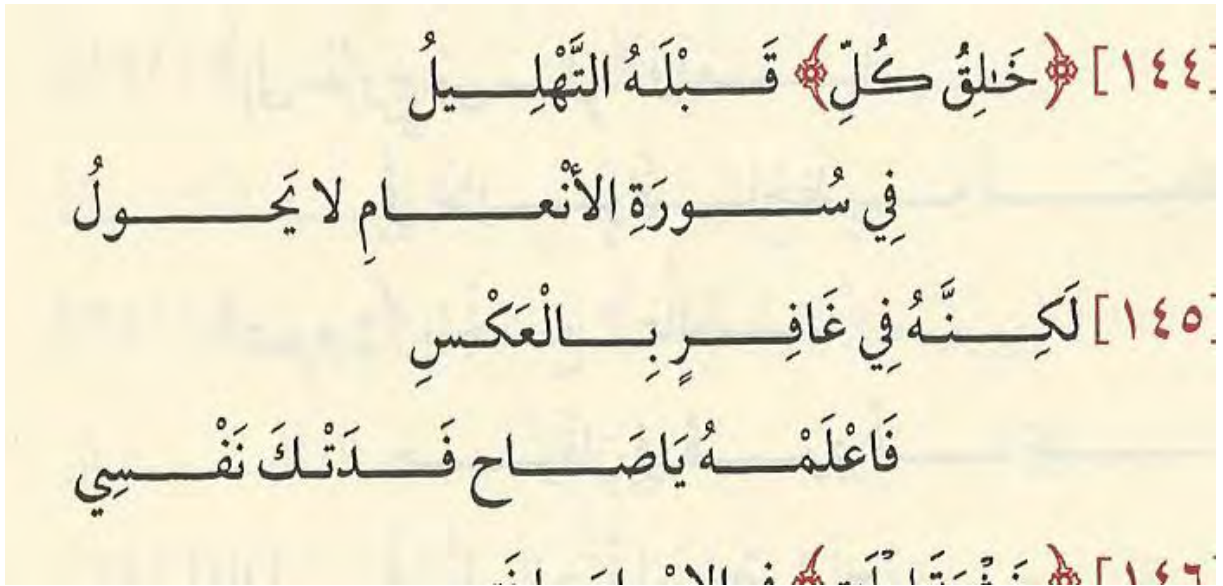 [١٤٤] ﴿خَٰلِقُ كُلِّ﴾ قَبْلَهُ التَّهْلِيلُ
فِي سُورَةِ الأَنْعَامِ لا يَحُولُ
[١٤٥] لَكِنَّهُ فِي غَافِرٍ بِالْعَكْسِ
فَاعْلَمْهُ يَاصَاحِ فَدَتْكَ نَفْسِي
[١٤٦]